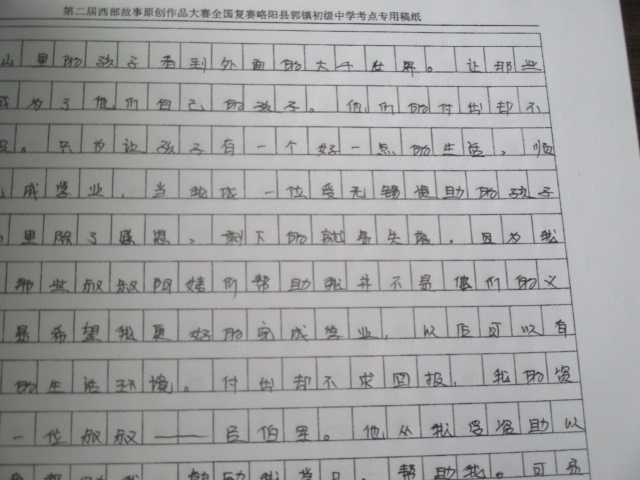 第二届西部故事原创作品大赛全国复赛略阳县郭镇初级中学考点专用稿纸
山里的孩子看到外面的大千世界。让那些
成为了他们自己的孩子。他们的付出却不
。只为让孩子有一个好一点的生活,顺
成学业,当我成一位受无锡资助的孩子
里除了感恩,剩下的就是失落,因为我
那些叔叔阿姨们帮助我并不是他们的义
是希望我更好的完成学业,以后可以有
的生活环境。付出却不求回报,我的资
一位叔叔——吕伯里。他从我受资助以
我学习,帮助我。可是